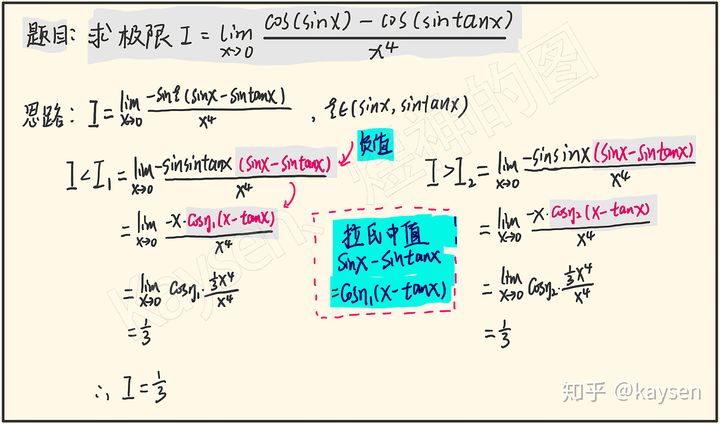 题目: 求极限 I = lim x→0 cos(sinx) - cos(sintanx) / x⁴
思路: I = lim x→0 -sinξ(sinx-sintanx) / x⁴ , ξ∈(sinx, sintanx)
负值
I < I₁ = lim x→0 -sinsintanx (sinx-sintanx) / x⁴
= lim x→0 -x·cosη₁(x-tanx) / x⁴
= lim x→0 cosη₁· 1/3 x⁴ / x⁴
= 1/3
∴ I = 1/3
拉氏中值
sinx-sintanx
=cosη₁(x-tanx)
I > I₂ = lim x→0 -sinsinx (sinx-sintanx) / x⁴
= lim x→0 -x·cosη₂(x-tanx) / x⁴
= lim x→0 cosη₂· 1/3 x⁴ / x⁴
= 1/3
Kaysen 煌神的图
知乎 @kaysen